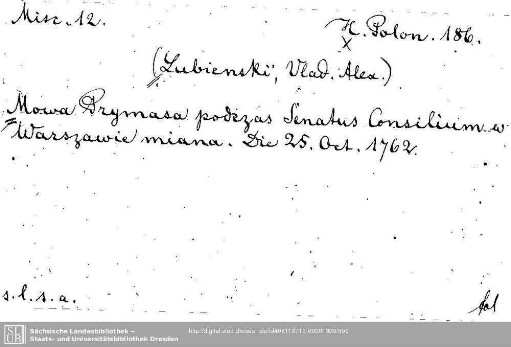 Misc. 12.
H. Polon. 186.
X
(Lubienski, Vlad. Alex.)
Mowa Prymasa podczas Senatus Consilium w
Warszawie miana. Die 25. Oct. 1762.
s. l. s. a.
fol
SLUB
Sächsische Landesbibliothek –
Staats- und Universitätsbibliothek Dresden